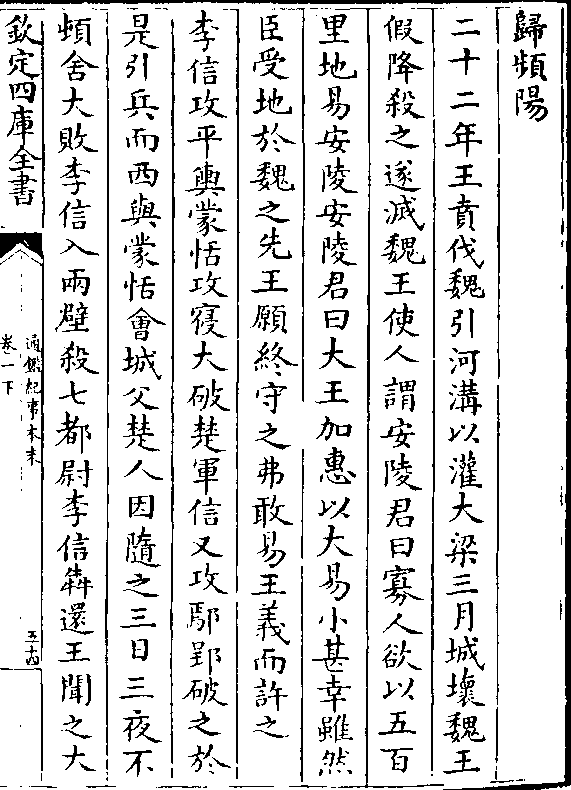 歸頻陽
二十二年王賁伐魏引河溝以灌大梁三月城壞魏王
假降殺之遂滅魏王使人謂安陵君曰寡人欲以五百
里地易安陵安陵君曰大王加惠以大易小甚幸雖然
臣受地於魏之先王願終守之弗敢易王義而許之
李信攻平輿蒙恬攻寢大破楚軍信又攻鄢郢破之於
是引兵而西與蒙恬會城父楚人因隨之三日三夜不
頓舍大敗李信入兩壁殺七都尉李信犇還王聞之大
欽定四庫全書
通鑑紀事本末
卷一下
五十四